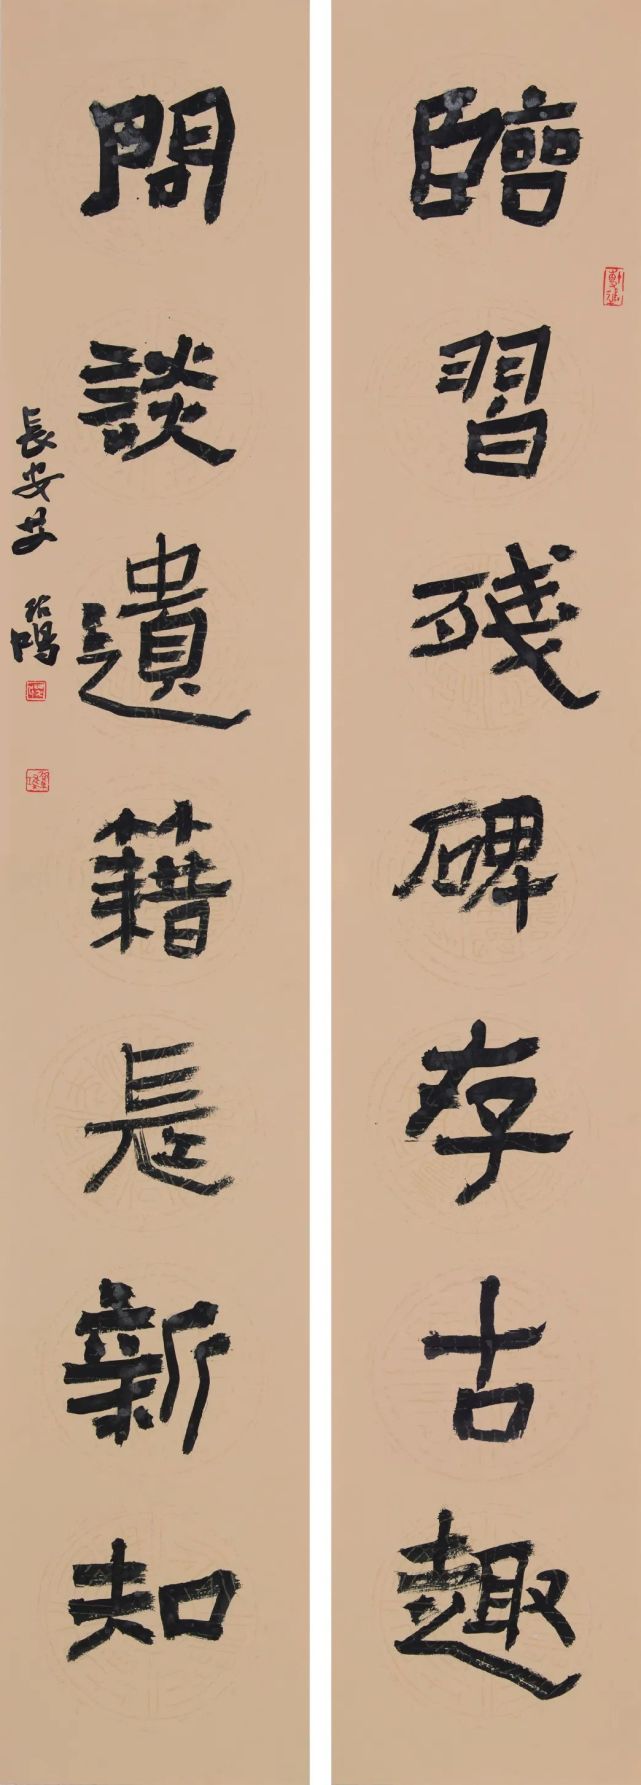 臨習殘碑存古趣
問談遺籍長新知
長安